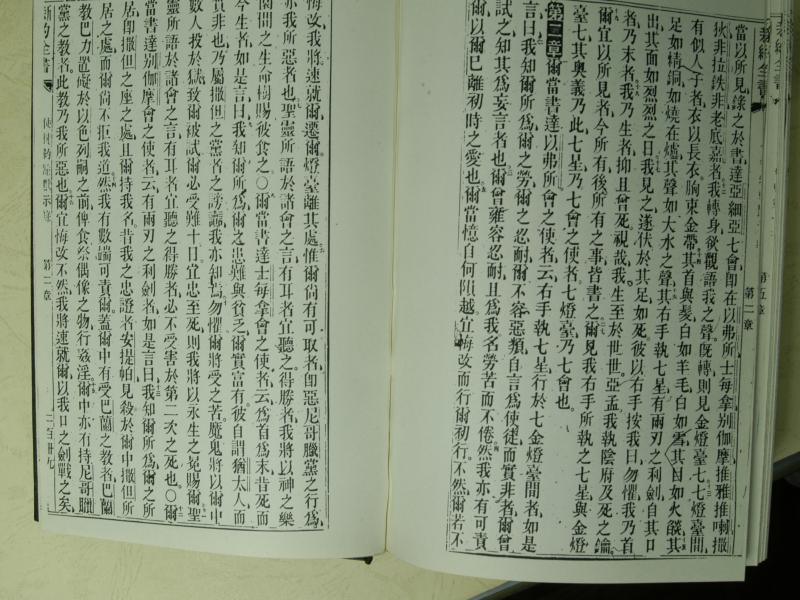 當以所見錄之於書達亞細亞七會卽在以弗所士每拿別伽摩推雅推喇撒
狄非拉鉄非老底嘉者我轉身欲觀語我之聲旣轉則見金燈臺七七燈臺間
有似人子者衣以長衣胸束金帶其首與髮白如羊毛白如雪其目如火燄其
足如精銅如燒在爐其聲如大水之聲其右手執七星有兩刃之利劍自其口
出其面如烈烈之日我見之遂伏於其足如死彼以右手按我曰勿懼我乃首
者乃末者我乃生者抑且曾死視哉我生至於世世亞孟我執陰府及死之鑰
爾宜以所見者今所有後所有之事皆書之爾見我右手所執之七星與金燈
臺七其奧義乃此七星乃七會之使者七燈臺乃七會也
第二章爾當書達以弗所會之使者云右手執七星行於七金燈臺間者如是
言曰我知爾所爲爾之勞爾之忍耐爾不容惡類自言爲使徒而實非者爾曾
試之知其爲妄言者也爾曾雍容忍耐且爲我名勞苦而不倦然我亦有可責
爾以爾已離初時之愛也爾當憶自何隕越宜悔改而行爾初行不然爾若不
悔改我將速就爾遷爾燈臺離其處惟爾尙有可取者卽惡尼哥臘黨之行爲
亦我所惡者也聖靈所語於諸會之言有耳者宜聽之得勝者我將以神之樂
園間之生命樹賜彼食之〇爾當書達士每拿會之使者云爲首爲末昔死而
今生者如是言曰我知爾所爲爾之患難與貧乏爾實富有彼自謂猶太人而
實非也乃屬撒但之黨者之謗讟我亦知焉勿懼爾將受之苦魔鬼將以爾中
數人投於獄致爾被試爾必受難十日宜忠至死則我將以永生之冕賜爾聖
靈所語於諸會之言有耳者宜聽之得勝者必不受害於第二次之死也〇爾
當書達別伽摩會之使者云有兩刃之利劍者如是言曰我知爾所爲爾之所
居卽撒但之座之處且爾持我名昔我之忠證者安提帕見殺於爾中撒但所
居之處而爾尙不拒我道然我有數端可責爾蓋爾中有受巴蘭之教者巴蘭
教巴力置礙於以色列嗣之前俾食祭偶像之物行姦淫爾中亦有持尼哥臘
黨之教者此教乃我所惡也爾宜悔改不然我將速就爾以我口之劍戰之矣
新約全書
使徒約翰默示錄
第二章
二百卅九
第二章